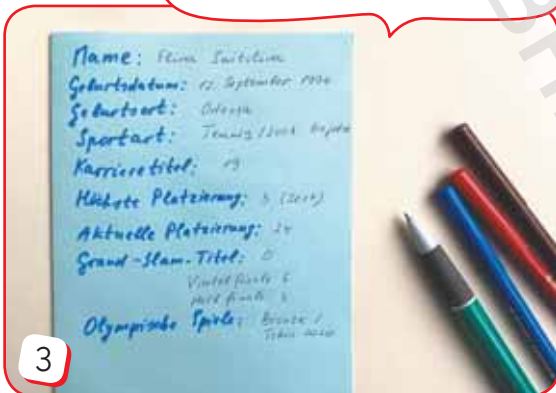 Name: Elina Switolina
Geburtsdatum: 12. September 1994
Geburtsort: Odessa
Sportart: Tennis /
Karrieretitel: 19
Höchste Platzierung: 3 (2017)
Aktuelle Platzierung: 24
Grand-Slam-Titel: 0
Viertelfinale 6
Halbfinale 3
Olympische Spiele: Bronze /
Tokio 2020
3